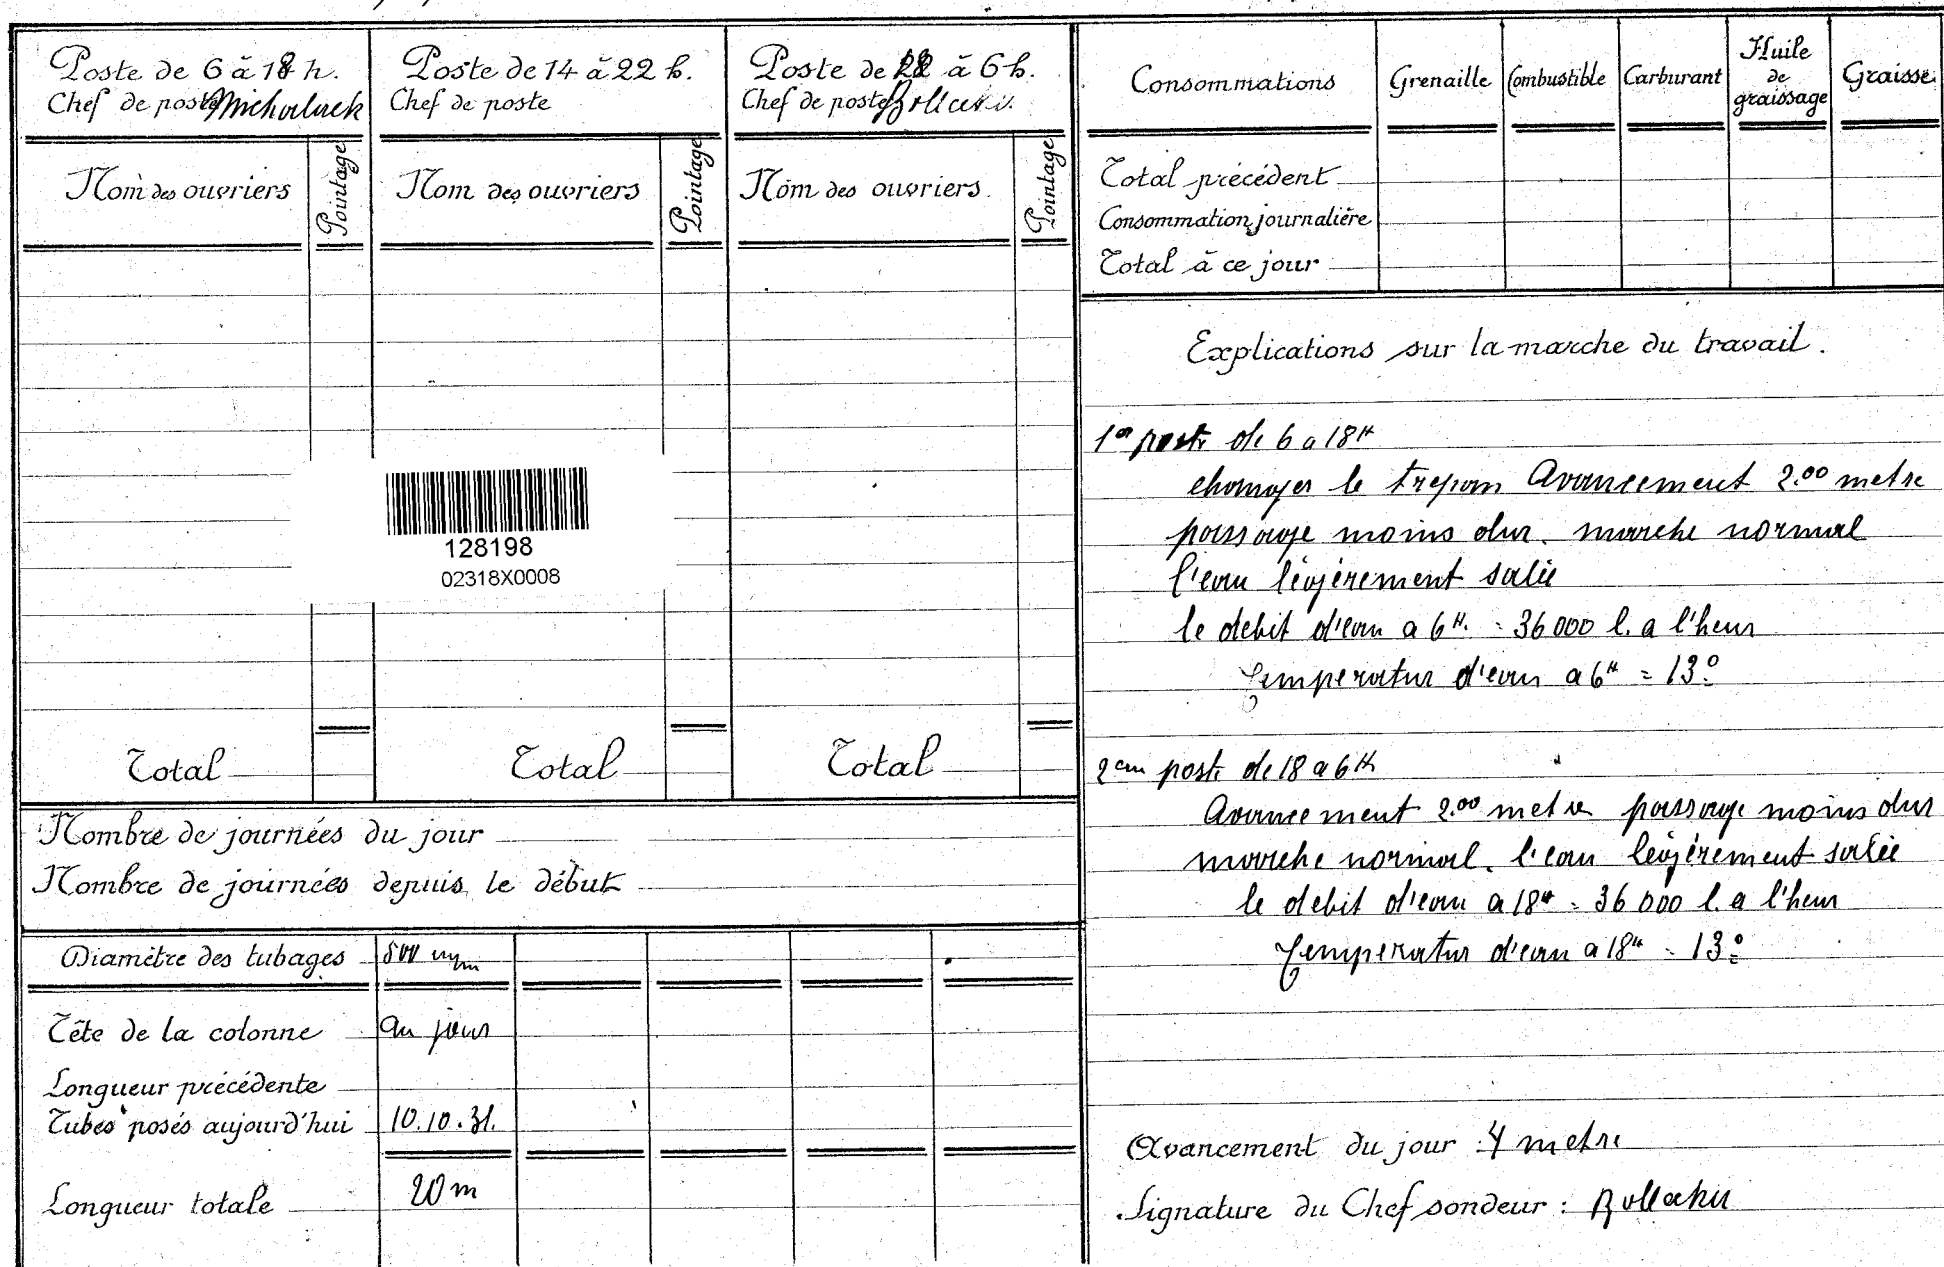 Poste de 6 à 18 h.
Chef de poste Michalack
Nom des ouvriers
Pointage
Total
Poste de 14 à 22 h.
Chef de poste
Nom des ouvriers
Pointage
Total
Poste de 18 à 6 h.
Chef de poste
Nom des ouvriers
Pointage
Total
128198
02318X0008
Nombre de journées du jour
Nombre de journées depuis le début
Diamètre des tubages 500 mm
Tête de la colonne au jour
Longueur précédente
Tubes posés aujourd'hui 10.10.31.
Longueur totale 20 m
Consommations Grenaille Combustible Carburant Huile de graissage Graisse
Total précédent
Consommation journalière
Total à ce jour
Explications sur la marche du travail.
1er poste de 6 a 18H
changer le trepan Avancement 2.00 metre
passage moins dur. marche normal
l'eau légèrement salée
le debit d'eau a 6H. = 36000 l. a l'heur
Temperatur d'eau a 6H = 13°
2em poste de 18 a 6H
Avancement 2.00 metre passage moins dur
marche normal. l'eau légèrement salée
le debit d'eau a 18H = 36000 l. a l'heur
Temperatur d'eau a 18H = 13°
Avancement du jour : 4 metre
Signature du Chef sondeur :